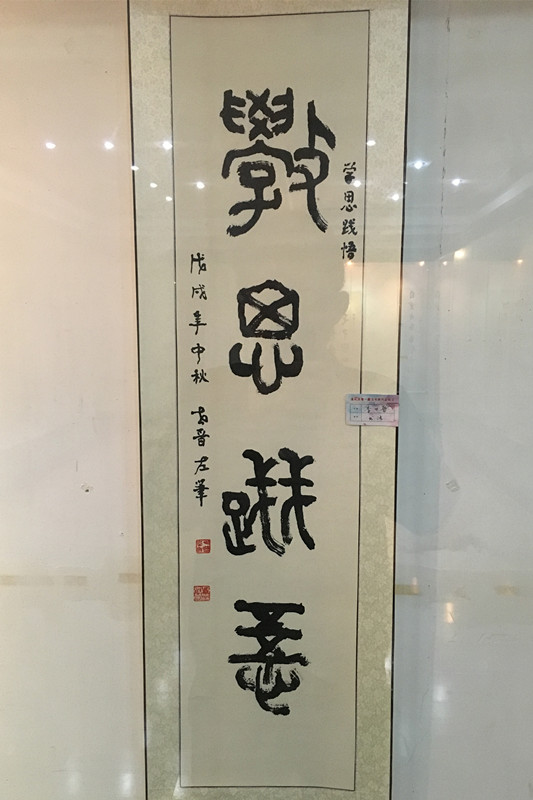 學思踐悟
学思践悟
戊戌年中秋 晋左筆